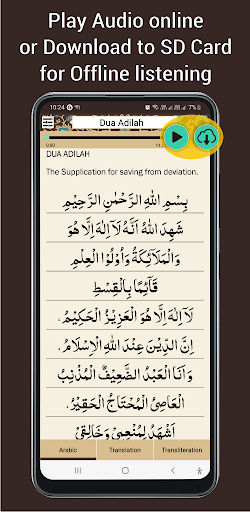 Play Audio online
or Download to SD Card
for Offline listening
10:24
7%
Dua Adilah
0:00
DUA ADILAH
The Supplication for saving from deviation.
بِسْمِ اللهِ الرَّحْمٰنِ الرَّحِيْمِ
شَهِدَ اللهُ اَنَّهُ لَآ اِلٰهَ اِلَّا هُوَ
وَالْمَلَآئِكَةُ وَاُوْلُوا الْعِلْمِ
قَآئِمًا بِالْقِسْطِ
لَآ اِلٰهَ اِلَّا هُوَ الْعَزِيْزُ الْحَكِيْمُ،
اِنَّ الدِّيْنَ عِنْدَ اللهِ الْاِسْلَامُ،
وَاَنَا الْعَبْدُ الضَّعِيْفُ الْمُذْنِبُ
الْعَاصِى الْمُحْتَاجُ الْحَقِيْرُ،
اَشْهَدُ لِمُنْعِمِىْ وَخَالِقِىْ
Arabic
Translation
Transliteration